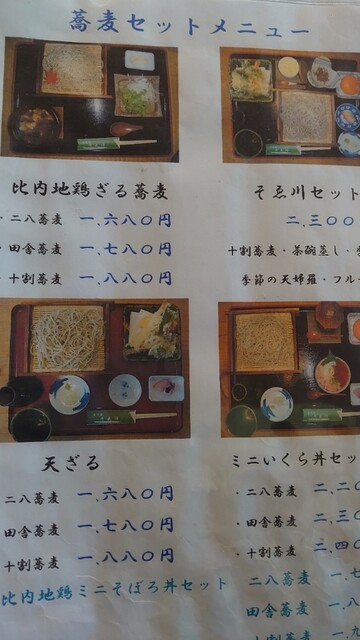 蕎麦セットメニュー
比内地鶏ざる蕎麦
・二八蕎麦 一.六八〇円
・田舎蕎麦 一.七八〇円
・十割蕎麦 一.八八〇円
そゑ川セット
二.三〇〇
十割蕎麦・茶碗蒸し・
季節の天婦羅・フルー
天ざる
二八蕎麦 一.六八〇円
田舎蕎麦 一.七八〇円
十割蕎麦 一.八八〇円
比内地鶏ミニそぼろ丼セット
ミニいくら丼セッ
・二八蕎麦 二.二〇
・田舎蕎麦 二.三〇
・十割蕎麦 二.四〇
二八蕎麦 一.七
田舎蕎麦 一.八
十割蕎麦 一.九